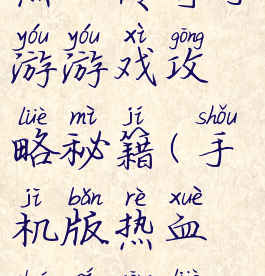 yóu yóu xì gōng
游游戏攻
lüè mì jí shǒu
略秘籍(手
jī bǎn rè xuè
机版热血